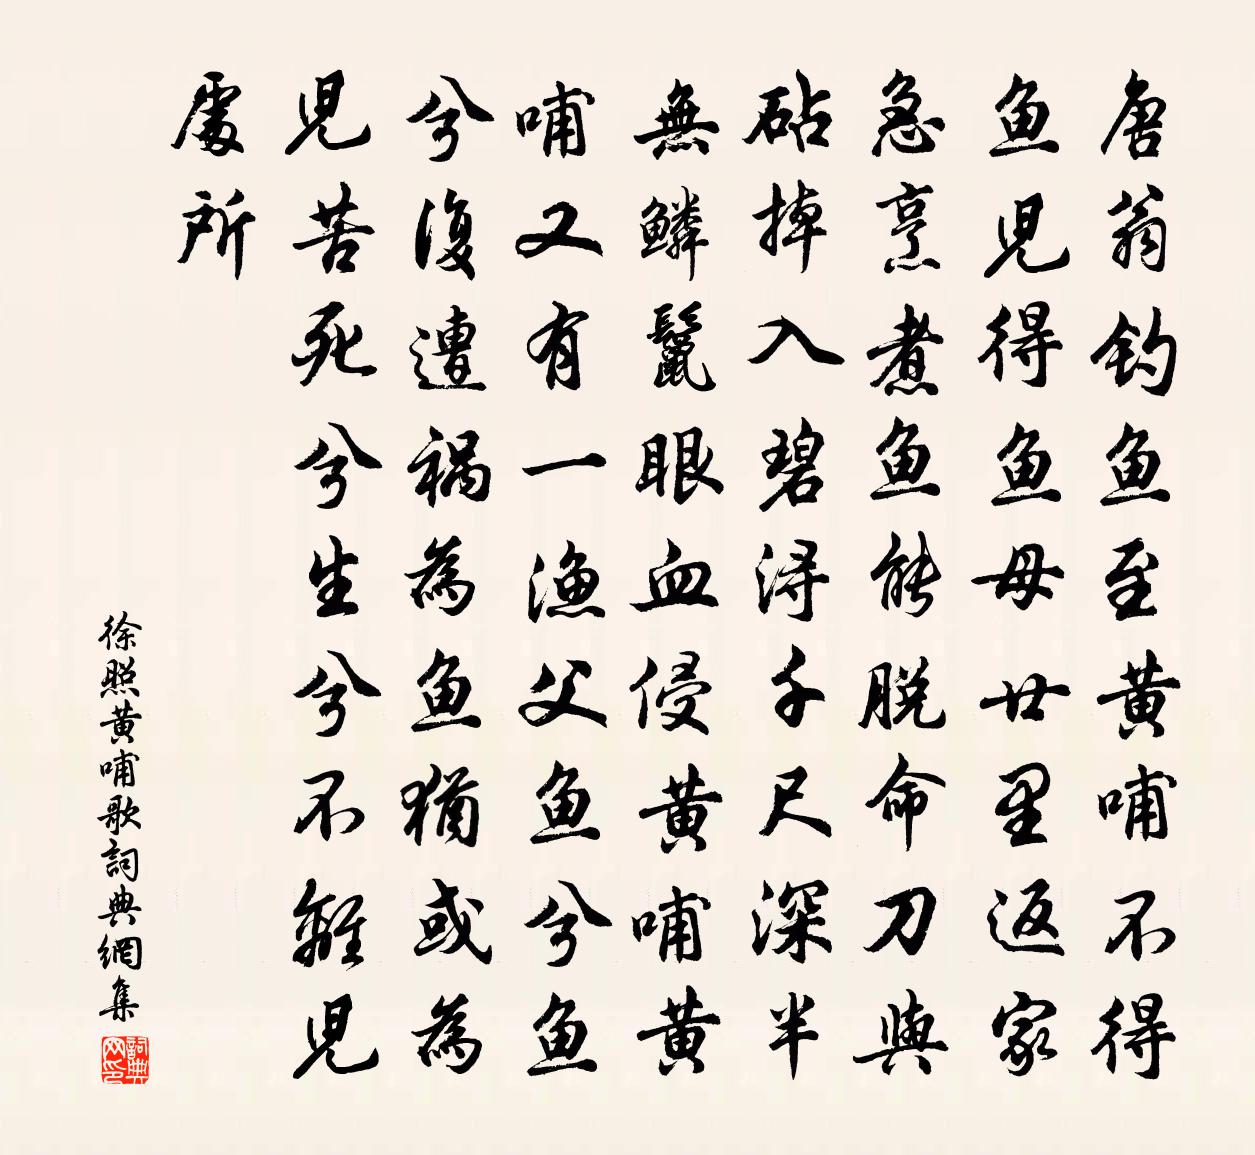 唐翁钓鱼至黄哺不得
鱼児得鱼母廿里返家
急烹煮鱼能脱命刀與
砧掉入碧浔千尺深半
無鱗鬣眼血侵黄哺黄
哺又有一渔父鱼兮鱼
兮復遭祸為鱼猶或為
児苦死兮生兮不離児
處所
徐照黄哺歌詞典網集
詞典网印